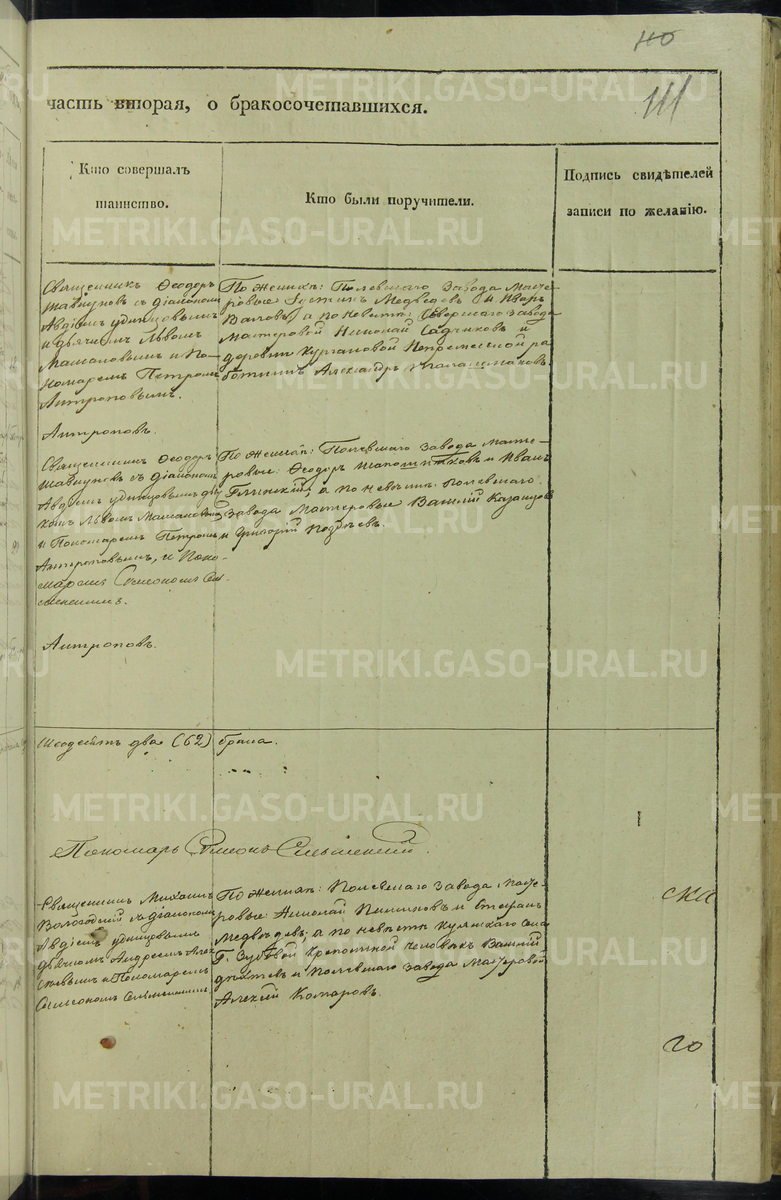 110
111
часть вторая, о бракосочетавшихся.
Кто совершалъ
таинство.
Кто были поручители.
Подпись свидѣтелей
записи по желанію.
Священникъ Ѳеодоръ
съ діакономъ
Авдіемъ Удинцовымъ
и дьячкомъ Львомъ
и По-
номаремъ Петромъ
Антроповымъ.
Антроповъ.
По женихѣ: Полевскаго Завода Масте-
ровые Устинъ Медведевъ и Иванъ
а по невѣстѣ: Сѣверскаго завода
Мастеровой Николай и
деревни Кургановой Непременной ра-
ботникъ Александръ
Священникъ Ѳеодоръ
съ діакономъ
Авдіемъ Удинцовымъ дья-
комъ Львомъ
и Пономаремъ Петромъ
Антроповымъ, и Поно-
маремъ Симеономъ
Антроповъ.
По женихѣ: Полевскаго Завода Масте-
ровые: Ѳеодоръ и Иванъ
Глинскій; а по невѣстѣ: Полевскаго
завода Мастеровые Василій Казанцовъ
и Григорій
Шесдесятъ два (62) брака.
Пономарь Симеонъ
Священникъ Михаилъ
Вологодскій съ діакономъ
Авдіемъ Удинцовымъ
дьячкомъ Андреемъ Алек-
сѣевымъ и Пономаремъ
Симеономъ
По женихѣ: Полевскаго Завода Масте-
ровые Николай и Степанъ
Медвѣдевъ; а по невѣстѣ
Г. Зубовой Крепостной человѣкъ Василий
и Полевскаго завода Мастеровой
Алексій Комаровъ.
ска
го
METRIKI.GASO-URAL.RU